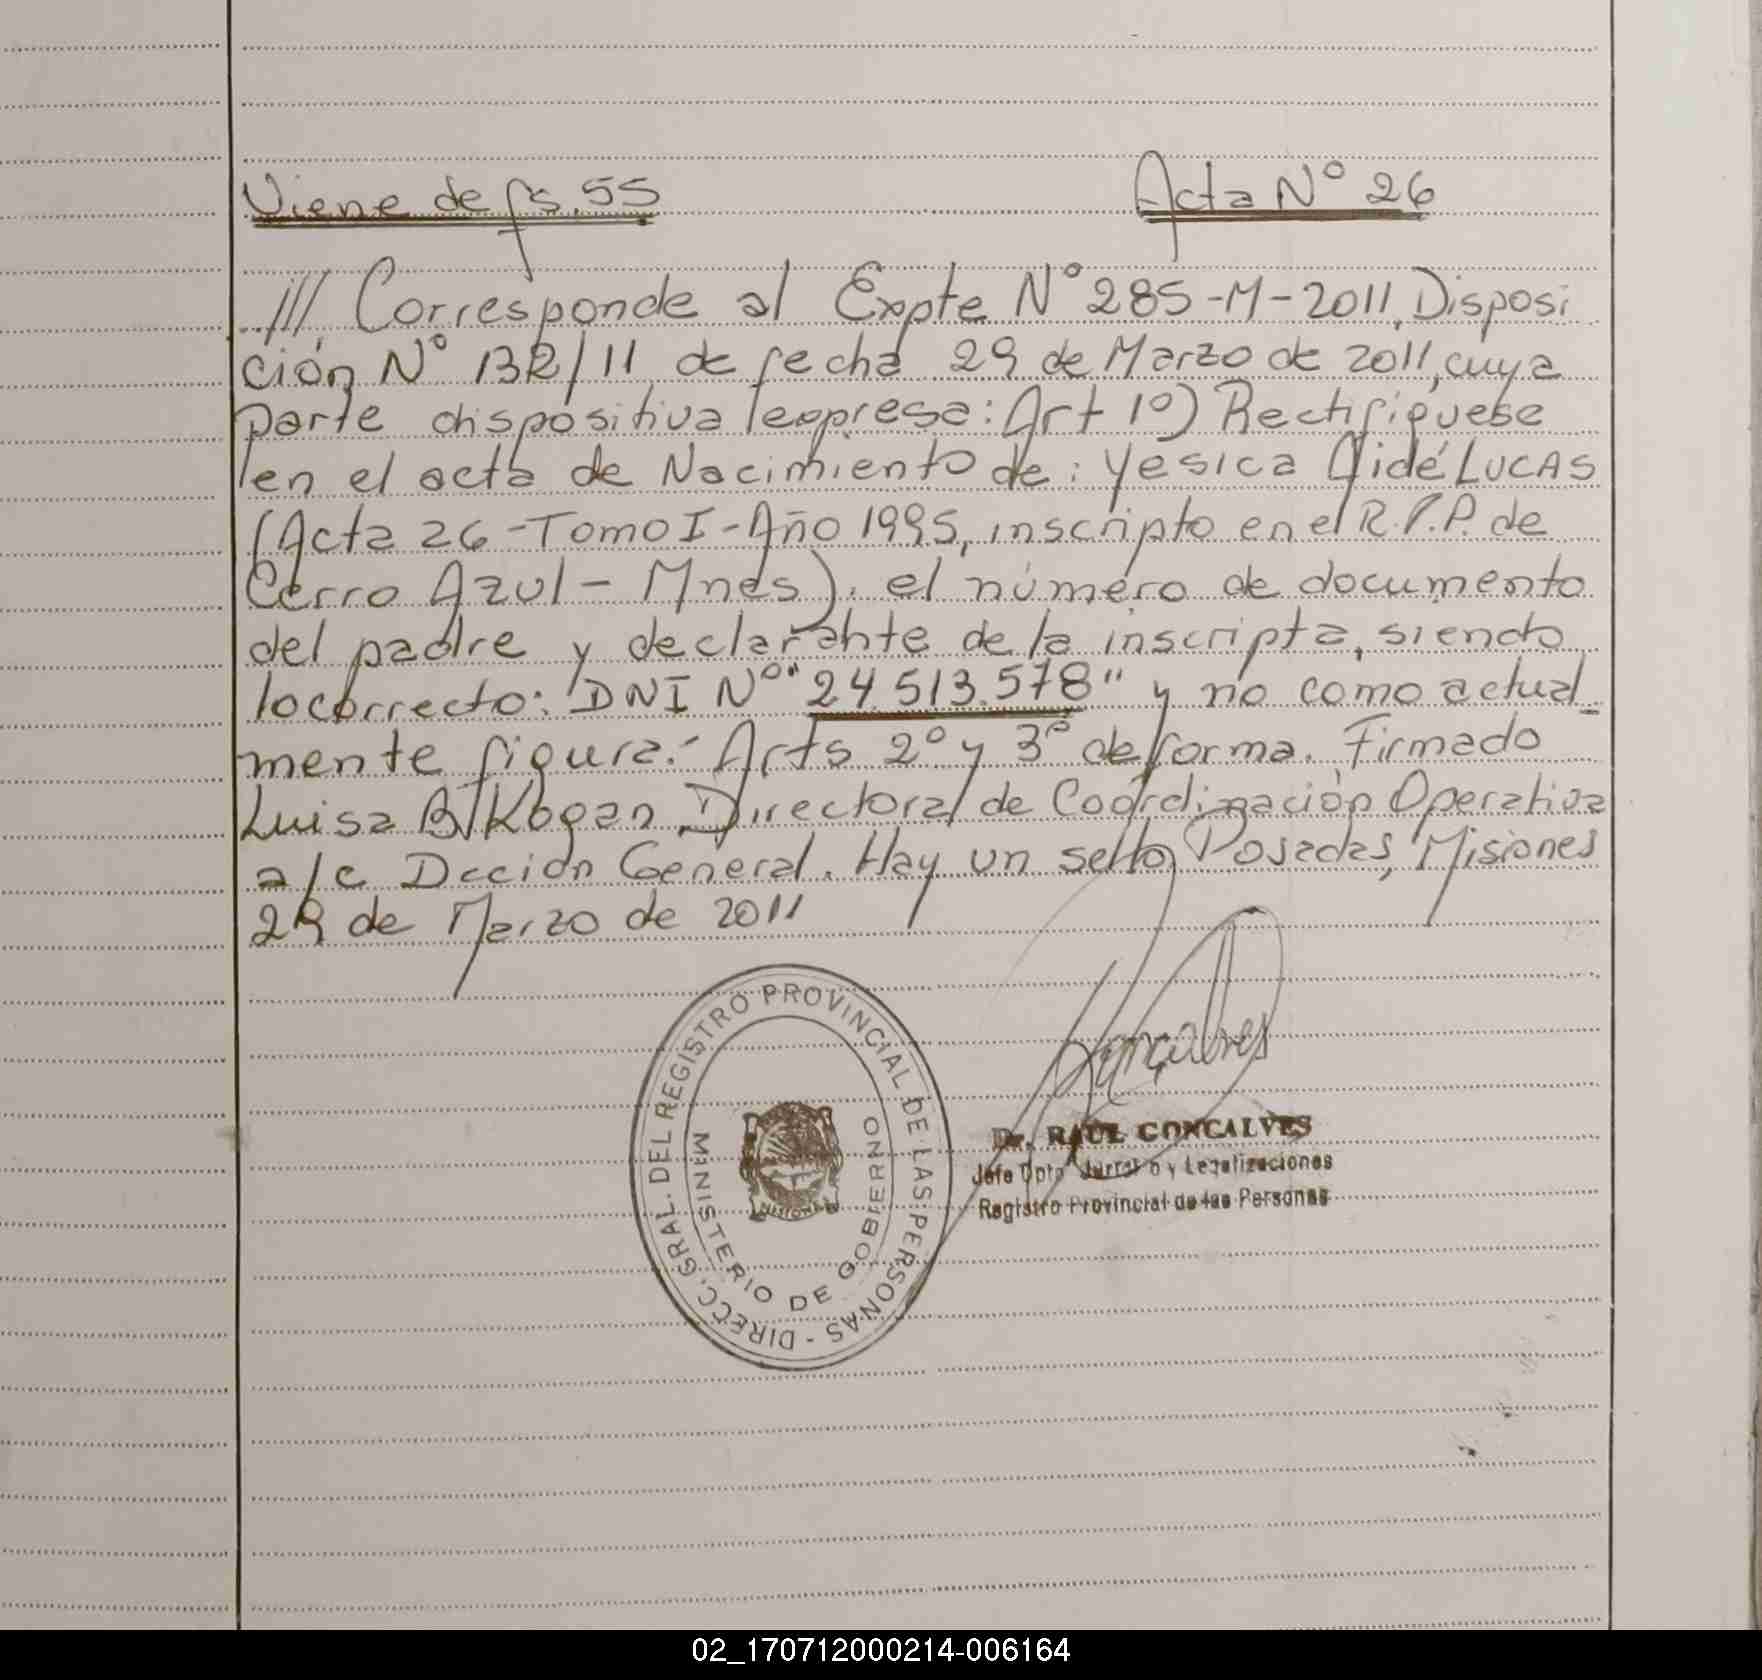 Viene de fs. 55
Acta Nº 26
/// Corresponde al Expte Nº 285-M-2011, Disposi
ción Nº 132/11 de fecha 29 de Marzo de 2011, cuya
parte dispositiva expresa: Art 1º) Rectifiquese
en el acta de Nacimiento de: Yesica Aidé LUCAS
(Acta 26-Tomo I-Año 1995, inscripto en el R.P.P. de
Cerro Azul - Mnes), el número de documento
del padre y declarante de la inscripta, siendo
lo correcto: DNI Nº "24.513.578" y no como actual
mente figura. Arts 2º y 3º de forma. Firmado
Luisa B. Kogan Directora de Coordinación Operativa
a/c Dcción General. Hay un sello Posadas, Misiones
29 de Marzo de 2011
DIRECC. GRAL. DEL REGISTRO PROVINCIAL DE LAS PERSONAS -
MINISTERIO DE GOBIERNO
MISIONES
Goncalves
Dr. RAUL GONCALVES
Jefe Dpto y Legalizaciones
Registro Provincial de las Personas
02_170712000214-006164